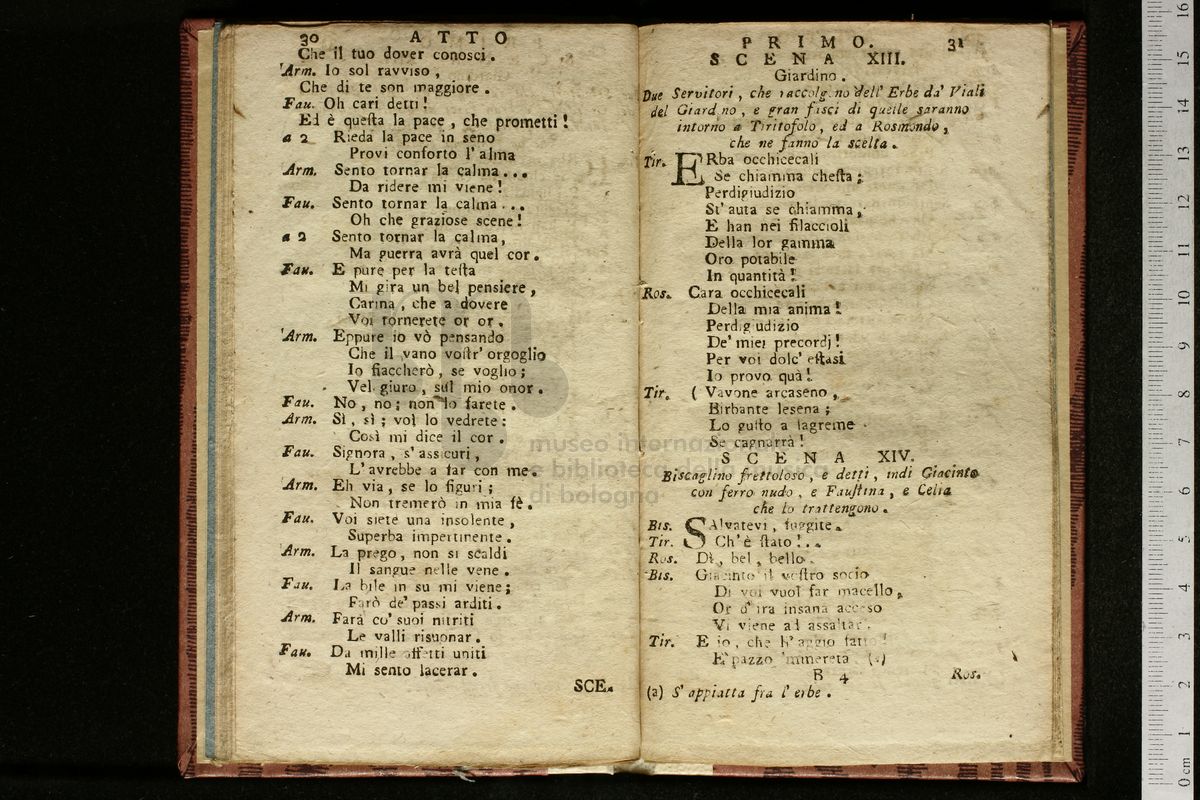 30 ATTO
Che il tuo dover conosci.
Arm. Io sol ravviso,
Che di te son maggiore.
Fau. Oh cari detti!
Ed è questa la pace, che prometti!
a 2 Rieda la pace in seno
Provi conforto l'alma
Arm. Sento tornar la calma...
Da ridere mi viene!
Fau. Sento tornar la calma...
Oh che graziose scene!
a 2 Sento tornar la calma,
Ma guerra avrà quel cor.
Fau. E pure per la testa
Mi gira un bel pensiere,
Carina, che a dovere
Voi tornerete or or.
Arm. Eppure io vò pensando
Che il vano vostr' orgoglio
Io fiaccherò, se voglio;
Vel giuro, sul mio onor.
Fau. No, no; non lo farete.
Arm. Sì, sì; voi lo vedrete:
Così mi dice il cor.
Fau. Signora, s'assicuri,
L'avrebbe a far con me.
Arm. Eh via, se lo figuri;
Non tremerò in mia fè.
Fau. Voi siete una insolente,
Superba impertinente.
Arm. La prego, non si scaldi
Il sangue nelle vene.
Fau. La bile in su mi viene;
Farò de' passi arditi.
Arm. Farà co' suoi nitriti
Le valli risuonar.
Fau. Da mille affetti uniti
Mi sento lacerar.
SCE.
PRIMO. 31
SCENA XIII.
Giardino.
Due Servitori, che raccolgono dell' Erbe da' Viali
del Giardino, e gran fasci di quelle saranno
intorno a Tiritofolo, ed a Rosmondo,
che ne fanno la scelta.
Tir. ERba occhicecali
Se chiamma chesta;
Perdigiudizio
St' auta se chiamma,
E han nei filaccioli
Della lor gamma
Oro potabile
In quantità!
Ros. Cara occhicecali
Della mia anima!
Perdigiudizio
De' miei precordj!
Per voi dolc' estasi
Io provo quà!
Tir. (Vavone arcaseno,
Birbante lesena;
Lo gusto a lagreme
Se cagnarrà!
SCENA XIV.
Biscaglino frettoloso, e detti, indi Giacinto
con ferro nudo, e Faustina, e Celia
che lo trattengono.
Bis. SAlvatevi, fuggite.
Tir. Ch'è stato!..
Ros. Dì, bel, bello.
Bis. Giacinto il vostro socio
Di voi vuol far macello,
Or d'ira insana acceso
Vi viene ad assaltar.
Tir. E io, che l'aggio fatto!
E' pazzo 'mmereta (a)
B 4 Ros.
(a) S' appiatta fra l' erbe.
museo internazionale
e biblioteca della musica
di bologna
0 cm 1 2 3 4 5 6 7 8 9 10 11 12 13 14 15 16